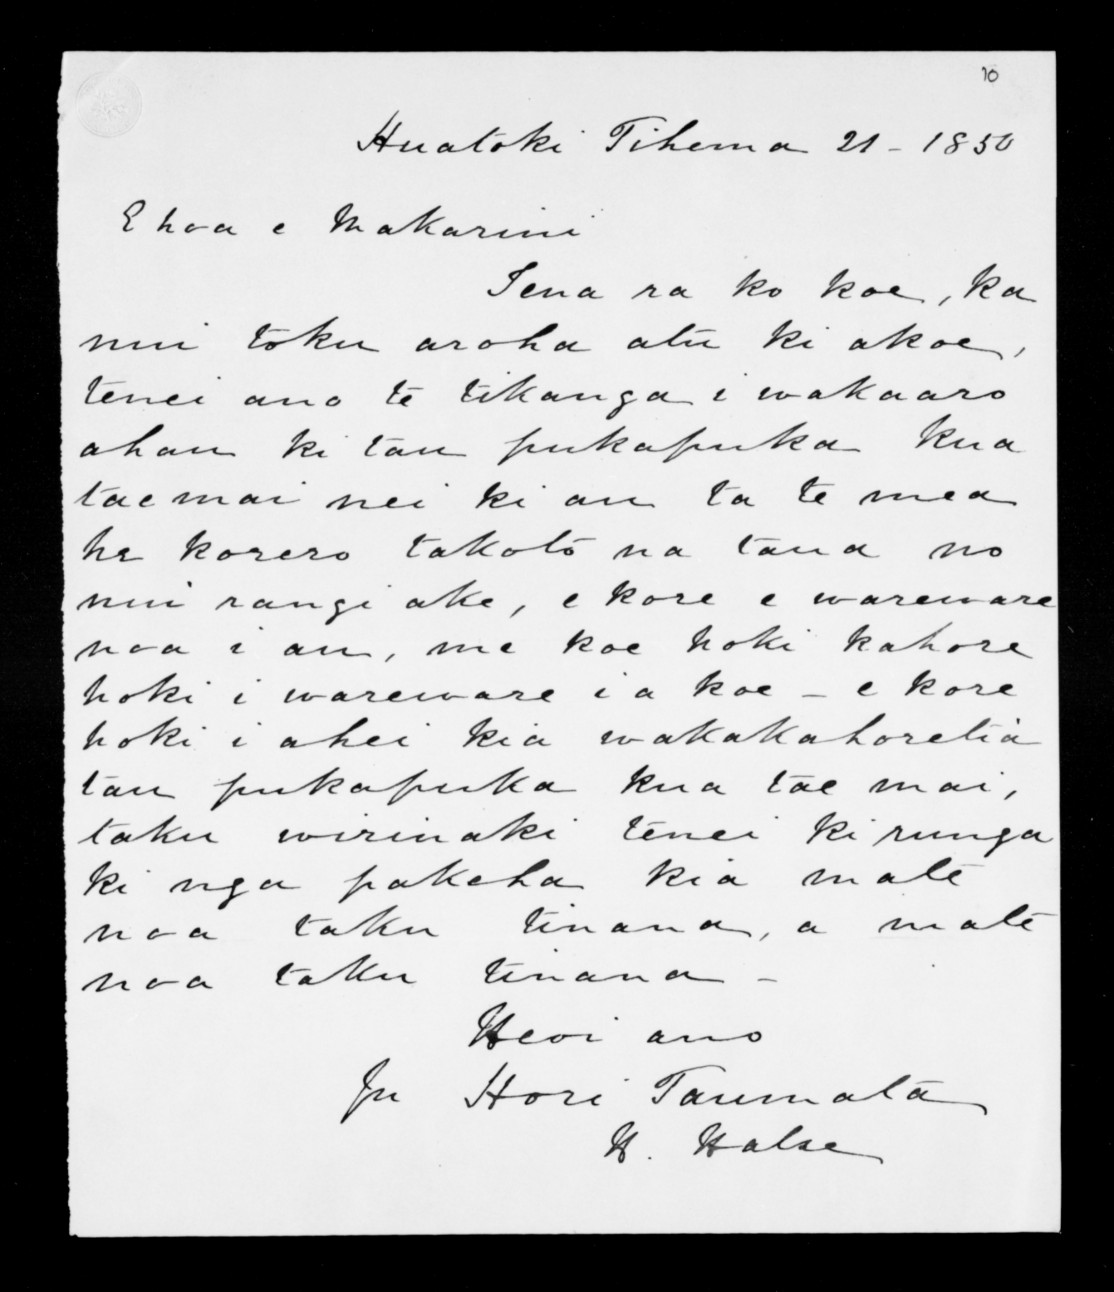 10
Huatoki Tihema 21 - 1850
E hoa e Makarini
Tena ra ko koe, ka
nui toku aroha atu ki akoe,
tenei ano te tikanga i wakaaro
ahau ki tau pukapuka kua
tae mai nei ki au ta te mea
he korero takoto na taua no
nui rangi ake, e kore e wareware
noa i au, me koe hoki kahore
hoki i wareware i a koe - e kore
hoki i ahei kia wakakahoretia
tau pukapuka kua tae mai,
taku wirinaki tenei ki runga
ki nga pakeha kia mate
noa taku tinana, a mate
noa taku tinana -
Heoi ano
Hori Taumata
H. Halse